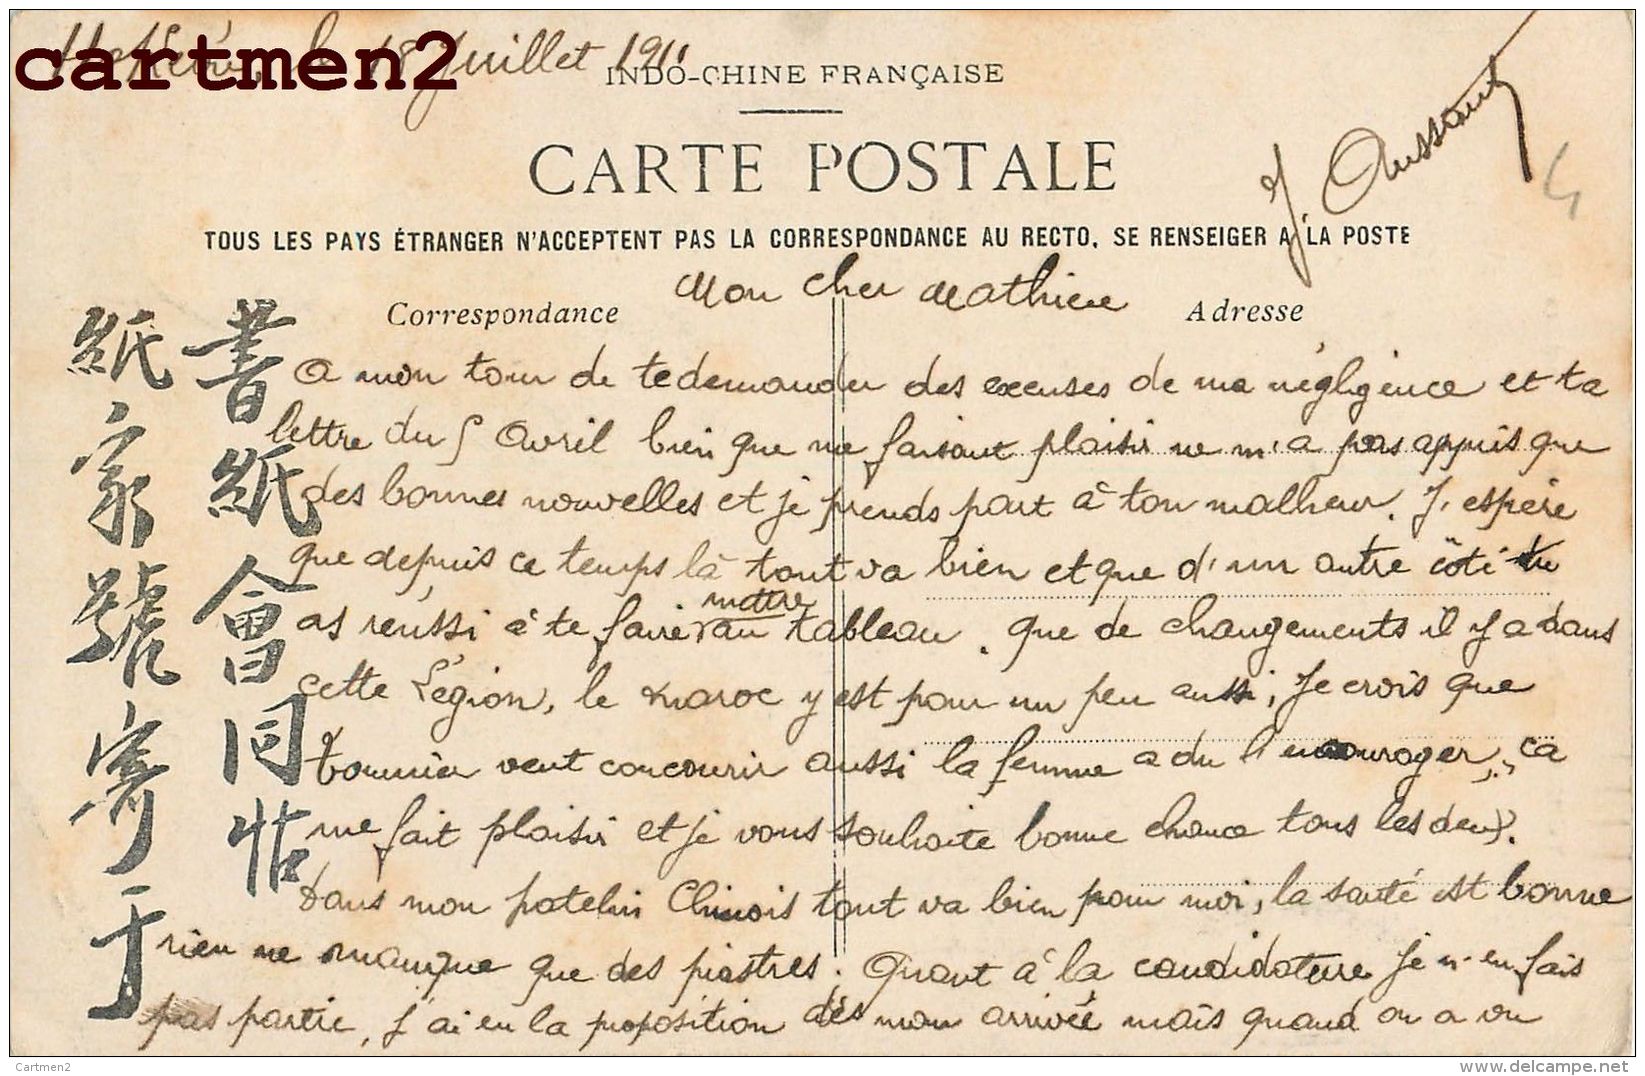 cartmen2
le 18 Juillet 1911
INDO-CHINE FRANÇAISE
CARTE POSTALE
TOUS LES PAYS ÉTRANGER N'ACCEPTENT PAS LA CORRESPONDANCE AU RECTO, SE RENSEIGER A LA POSTE
J. Aussant
4
Correspondance
Adresse
Mon cher Mathieu
書紙會同
紙家號寄于
A mon tour de te demander des excuses de ma négligence et ta
lettre du 5 Avril bien que me faisant plaisir ne m'a pas appris que
des bonnes nouvelles et je prends part à ton malheur. J'espère
que depuis ce temps là tout va bien et que d'un autre côté tu
as réussi à te faire mettre au tableau. Que de changements il y a dans
cette Légion, le Maroc y est pour un peu aussi, Je crois que
veut concourir aussi la femme a du l'encourager, ça
me fait plaisir et je vous souhaite bonne chance tous les deux.
Dans mon patelin Chinois tout va bien pour moi, la santé est bonne
rien ne manque que des piastres. Quant à la candidature je n'en fais
pas partie, j'ai eu la proposition dès mon arrivée mais quand on a vu
Cartmen2
www.delcampe.net